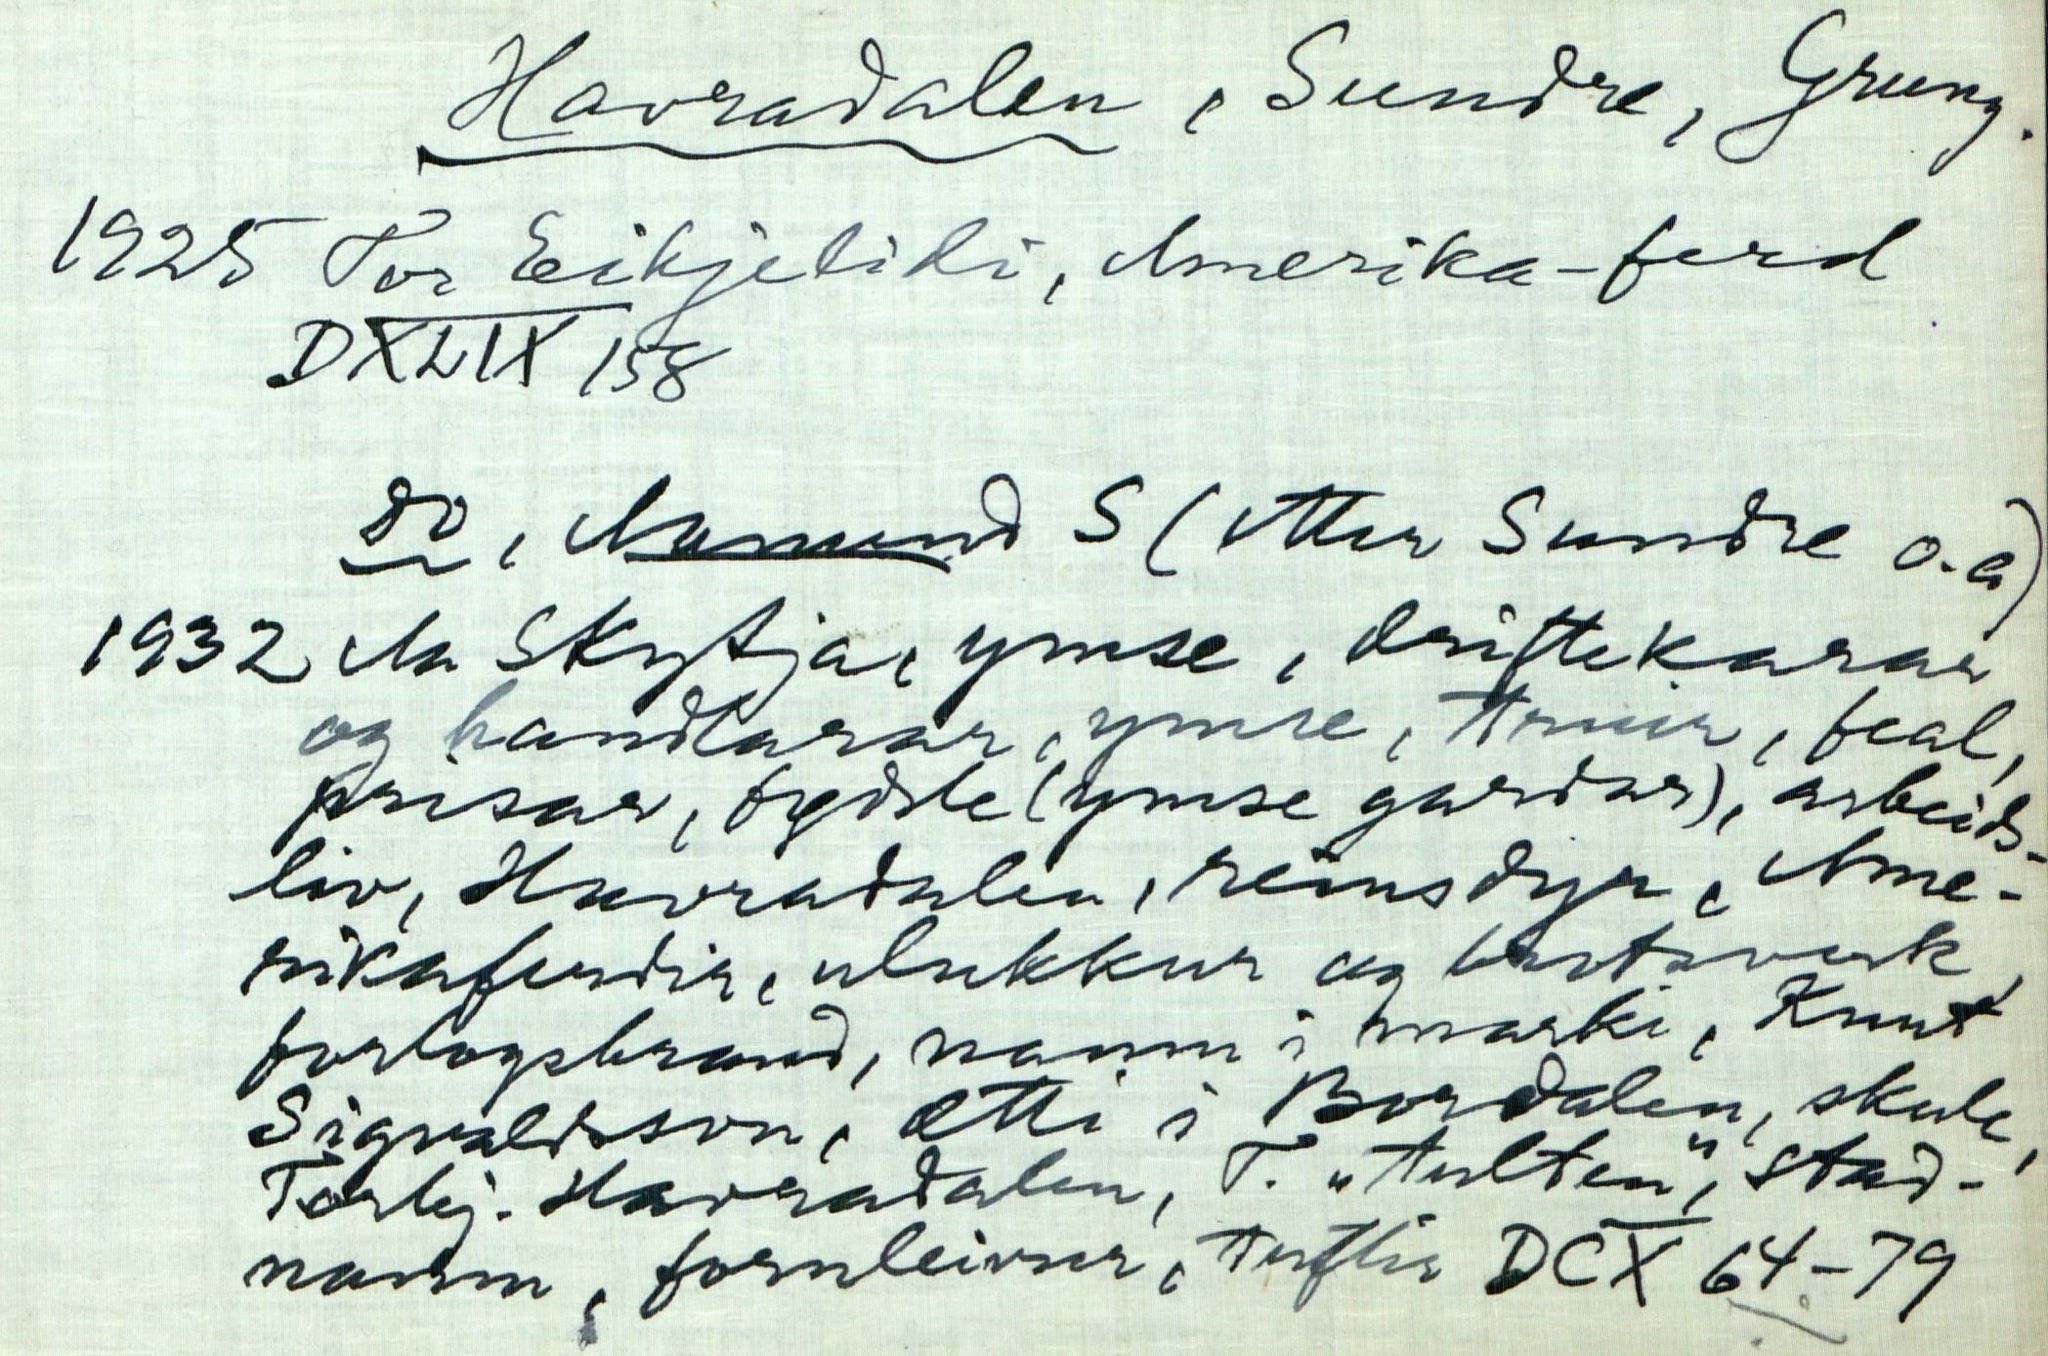 Havradalen, Sundre, Grung.
1925 Tor Eikjelidi, Amerika-ferd
DXLIX 158
do, Aamund S (etter Sundre o.a)
1932 Aa Skytja, ymse, driftekarar
og handlarar, ymse, truir, feal,
prisar, bygdsle (ymse gardar), arbeids-
liv, Havradalen, reinsdyr, Ame-
rikaferdir, ulukkur og brotsverk,
forlogsbrand, namn i marki, Knut
Sigvaldsson, ætti i Bordalen, skule,
Torbj. Havradalen, T. "Aulten", stad-
namn, fornleivur, tuftir DCX 64-79